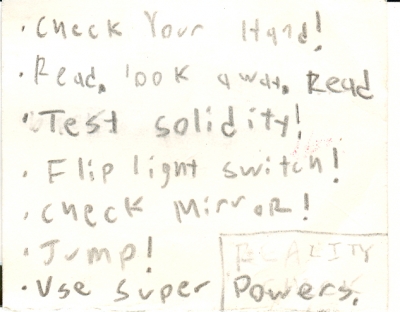 · Check Your Hand!
· Read, look away, Read
· Test solidity!
· Flip light switch!
· check Mirror!
· Jump!
REALITY
· Use super Powers.